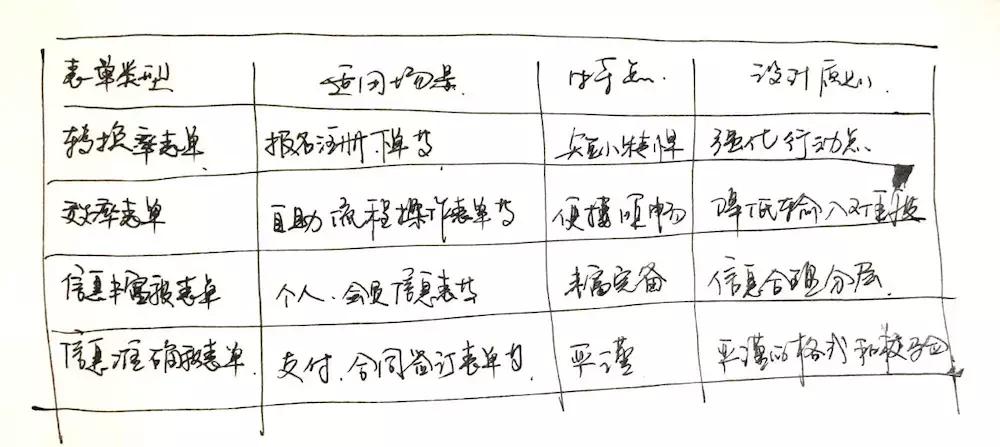 表单类型 适用场景 特点 设计原则
转换率表单 报名注册、下单等 短小精悍 强化行动点
效率表单 自助流程操作表单等 便捷顺畅 降低输入难度
信息丰富报表单 个人、会员信息表等 丰富完备 信息合理分层
信息准确报表单 支付、合同签订表单等 严谨 严谨的格式和校验